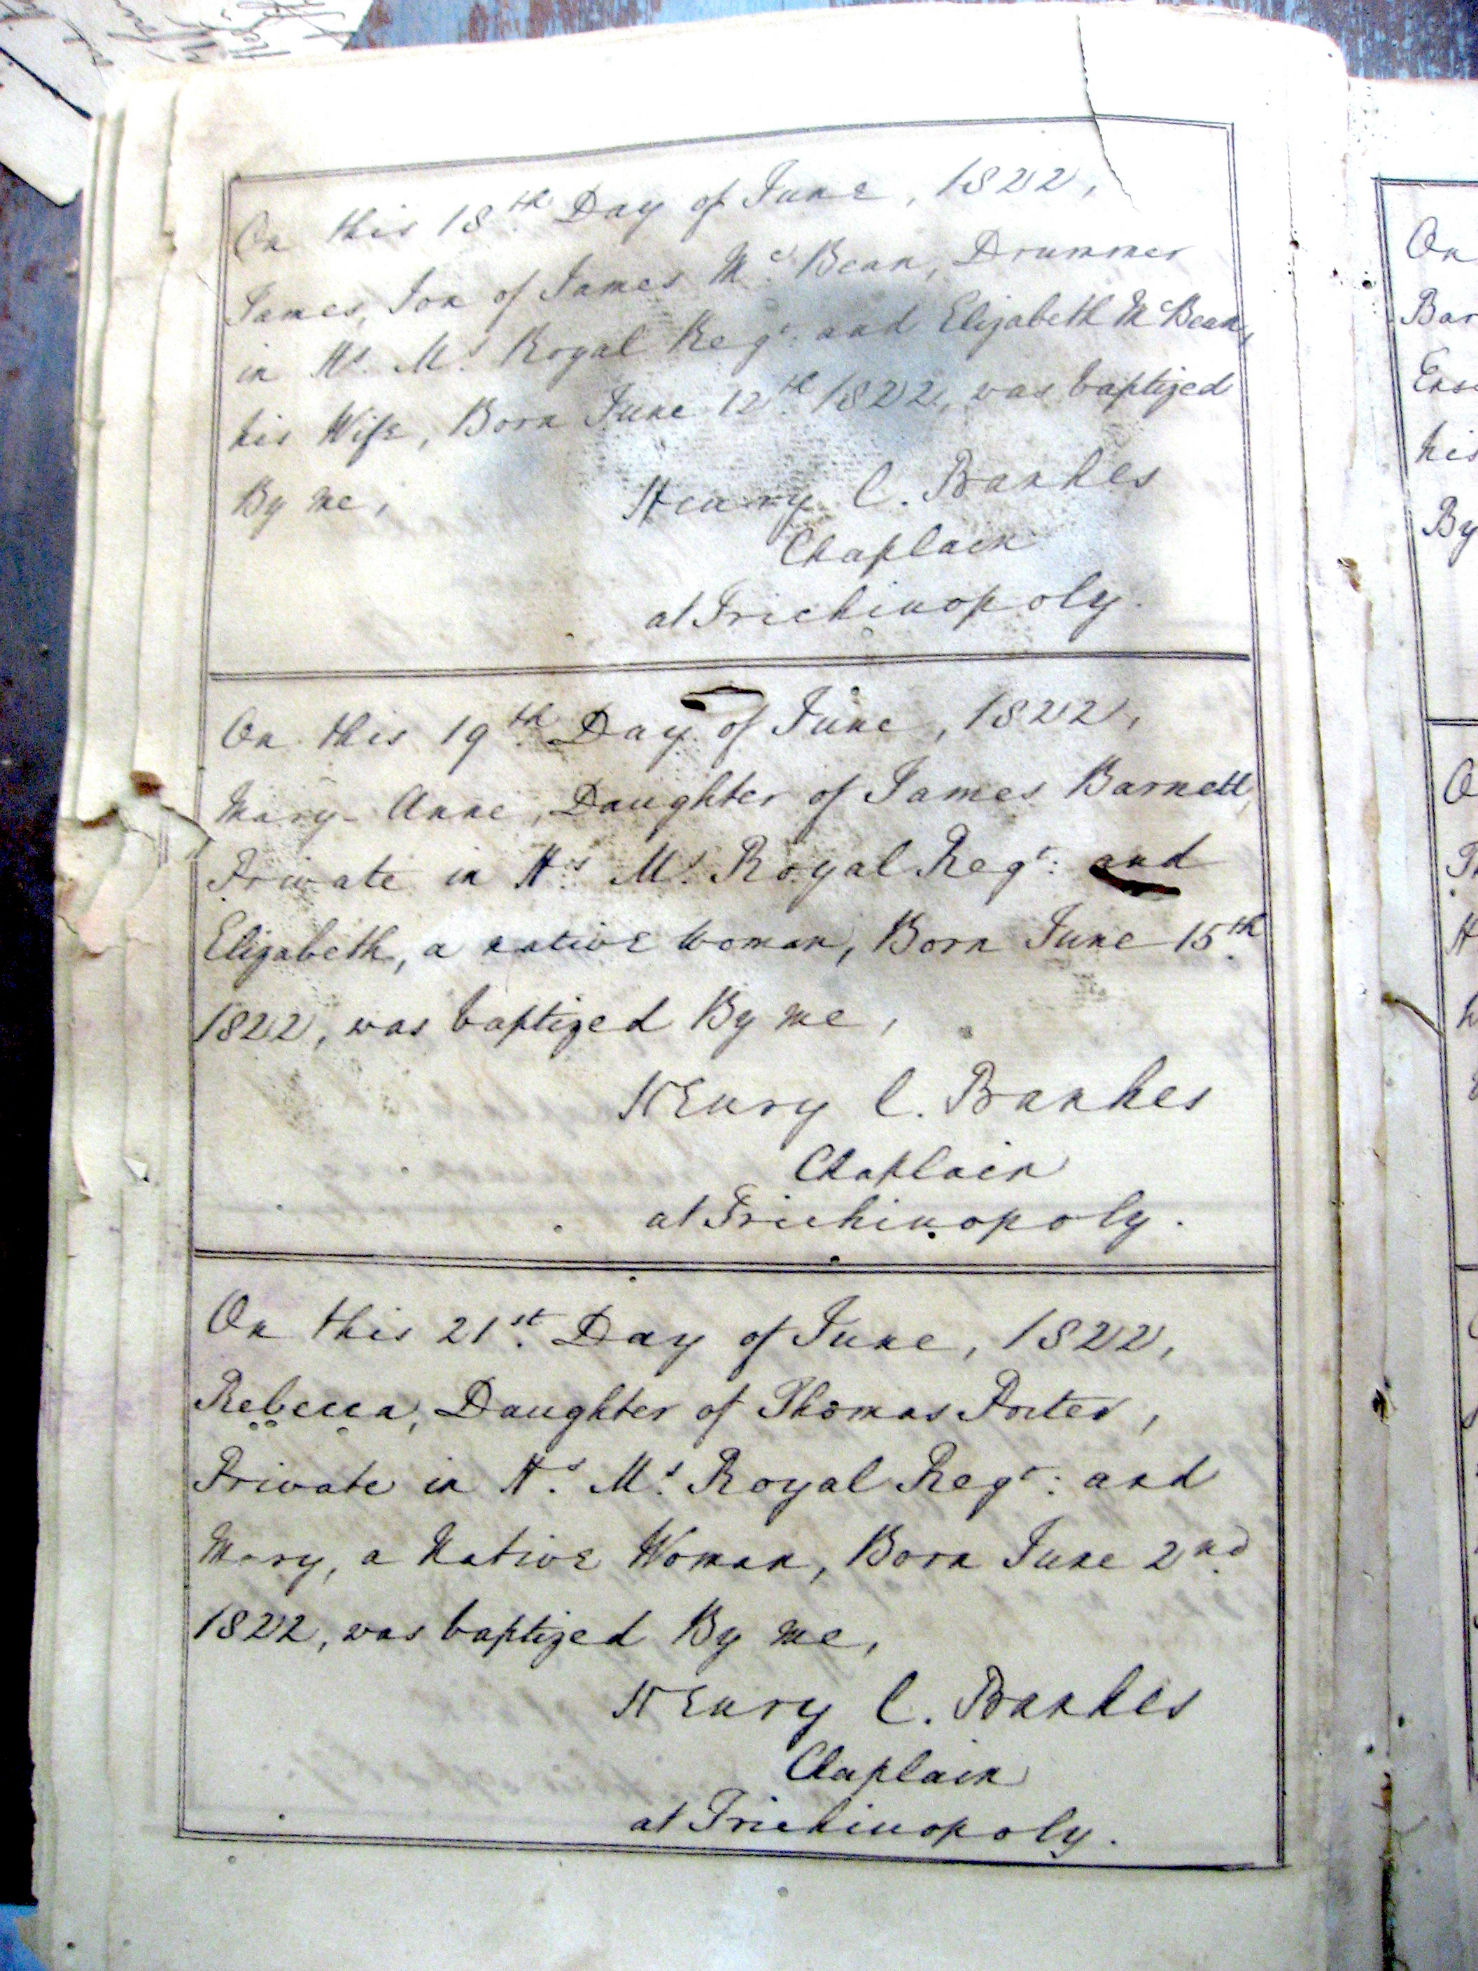 On this 18th Day of June, 1822,
James, Son of James Mc Bean, Drummer
in Hs. Ms. Royal Regt. and Elizabeth McBean,
his Wife, Born June 12th 1822, was baptized
By me,
Henry C. Bankes
Chaplain
at Trichinopoly.
On this 19th Day of June, 1822,
Mary-Anne, Daughter of James Barnett,
Private in Hs. Ms. Royal Regt: and
Elizabeth, a native woman, Born June 15th
1822, was baptized By me,
Henry C. Bankes
Chaplain
at Trichinopoly.
On this 21st Day of June, 1822,
Rebecca, Daughter of Thomas Porter,
Private in Hs. Ms. Royal Regt: and
Mary, a Native Woman, Born June 2nd
1822, was baptized By me,
Henry C. Bankes
Chaplain
at Trichinopoly.
On
his
By